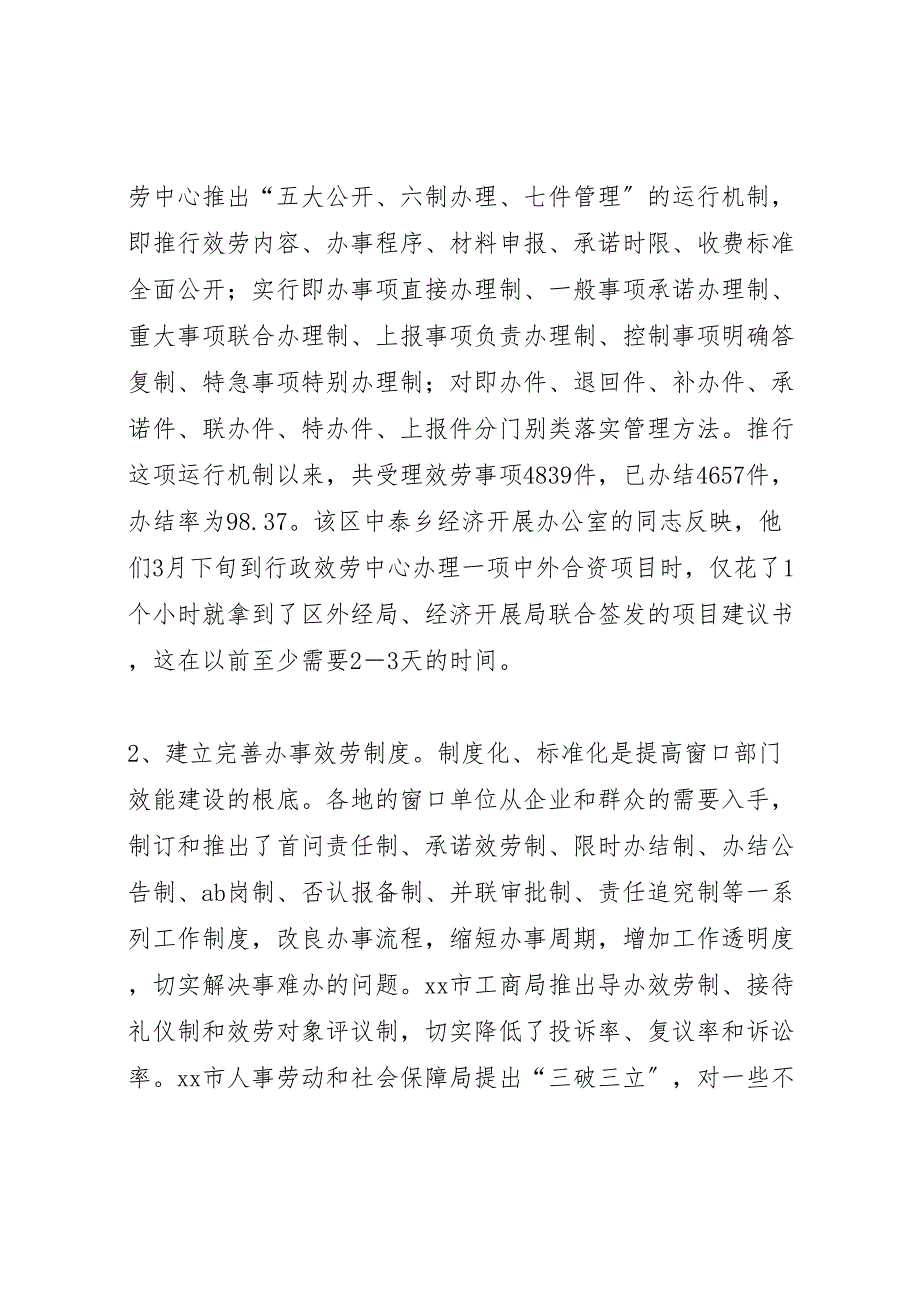 劳中心推出“五大公开、六制办理、七件管理〞的运行机制，
即推行效劳内容、办事程序、材料申报、承诺时限、收费标准
全面公开；实行即办事项直接办理制、一般事项承诺办理制、
重大事项联合办理制、上报事项负责办理制、控制事项明确答
复制、特急事项特别办理制；对即办件、退回件、补办件、承
诺件、联办件、特办件、上报件分门别类落实管理方法。推行
这项运行机制以来，共受理效劳事项4839件，已办结4657件，
办结率为98.37。该区中泰乡经济开展办公室的同志反映，他
们3月下旬到行政效劳中心办理一项中外合资项目时，仅花了1
个小时就拿到了区外经局、经济开展局联合签发的项目建议书
，这在以前至少需要2－3天的时间。
2、建立完善办事效劳制度。制度化、标准化是提高窗口部门
效能建设的根底。各地的窗口单位从企业和群众的需要入手，
制订和推出了首问责任制、承诺效劳制、限时办结制、办结公
告制、ab岗制、否认报备制、并联审批制、责任追究制等一系
列工作制度，改良办事流程，缩短办事周期，增加工作透明度
，切实解决事难办的问题。xx市工商局推出导办效劳制、接待
礼仪制和效劳对象评议制，切实降低了投诉率、复议率和诉讼
率。xx市人事劳动和社会保障局提出“三破三立〞，对一些不